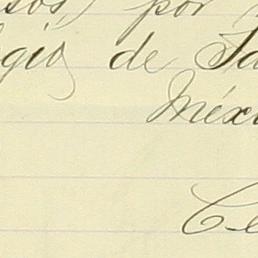 sos, por
gio de Sa
Méxi
Ce